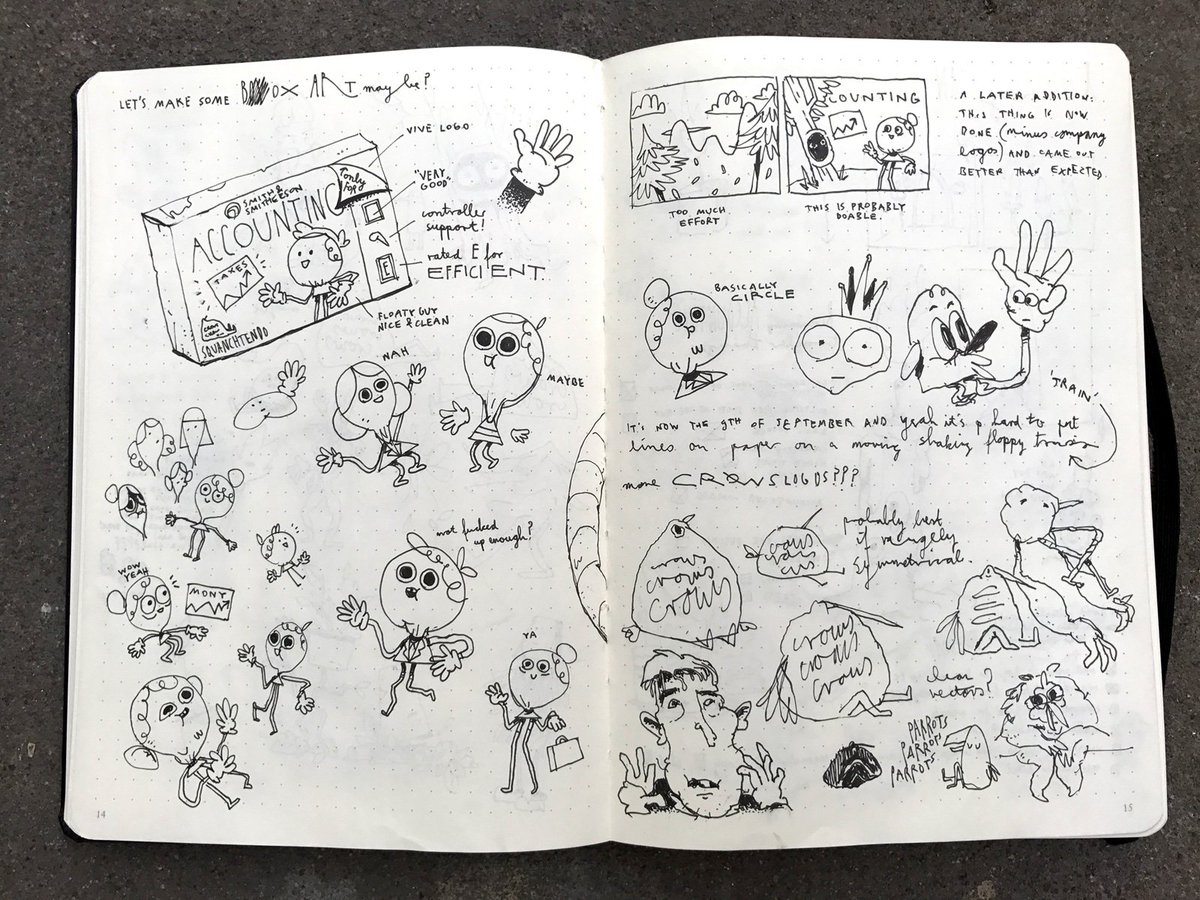 LET'S MAKE SOME BOX ART maybe?
VIVE LOGO
"VERY
GOOD"
controller
support!
rated E for
EFFICIENT
only
SMITH &
SMITHGESON
ACCOUNTING
TAXES
E
CROWS
CROWS
SQUANCHTENDO
FLOATY GUY
NICE & CLEAN
NAH
MAYBE
not fucked
up enough?
WOW
YEAH
MONY
YA
14
COUNTING
TOO MUCH
EFFORT
THIS IS PROBABLY
DOABLE.
A LATER ADDITION:
THIS THING IS NOW
DONE (minus company
logos) AND CAME OUT
BETTER THAN EXPECTED
BASICALLY
CIRCLE
'TRAIN'
IT'S NOW THE 9TH OF SEPTEMBER AND yeah it's p hard to put
lines on paper on a moving shaking floppy train
more CROWS LOGOS???
crows
crows
crows
crows
crows
crows
probably best
if vaguely
symmetrical.
crows
crows
crows
clean
vectors?
PARROTS
PARROTS
PARROTS
15